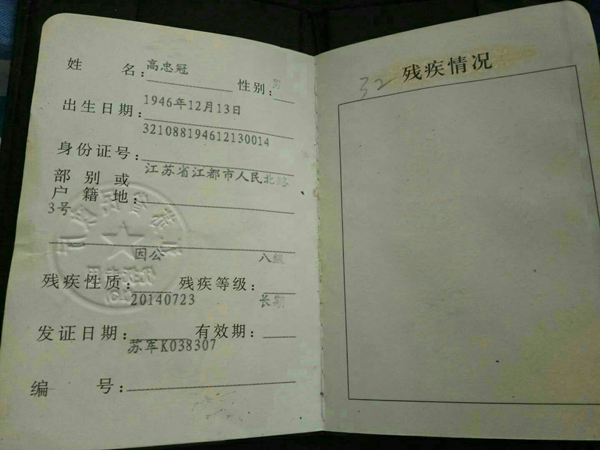 姓 名: 高忠冠 性别: 男
出生日期: 1946年12月13日
身份证号: 321088194612130014
部别或
户籍地: 江苏省江都市人民北路
3号
残疾性质: 因公 残疾等级: 八级
发证日期: 20140723 有效期: 长期
编 号: 苏军K038307
32 残疾情况